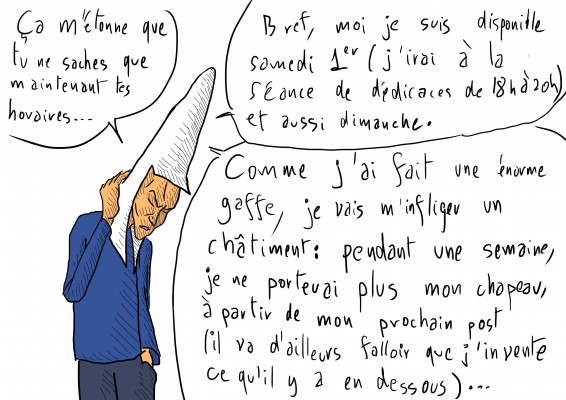 Ça m'étonne que
tu ne saches que
maintenant tes
horaires...
Bref, moi je suis disponible
samedi 1er (j'irai à la
séance de dédicaces de 18h à 20h)
et aussi dimanche.
Comme j'ai fait une énorme
gaffe, je vais m'infliger un
châtiment: pendant une semaine,
je ne porterai plus mon chapeau,
à partir de mon prochain post
(il va d'ailleurs falloir que j'invente
ce qu'il y a en dessous)...